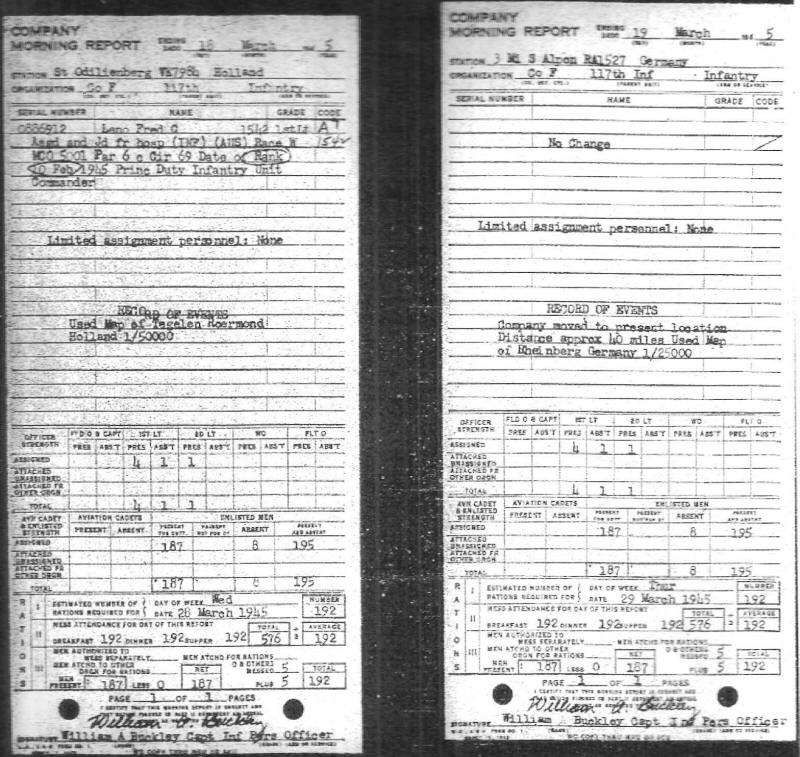 COMPANY
MORNING REPORT ENDING 18 March 194 5
STATION St Odilienberg VK7984 Holland
ORGANIZATION Co F 117th Infantry
SERIAL NUMBER NAME GRADE CODE
0886912 Leno Fred C 1542 1stLt AT
Asgd and Jd fr hosp (INF) (AUS) Race W 1542
MCO 5001 Par 6 c Cir 69 Date of Rank
10 Feb 1945 Princ Duty Infantry Unit
Commander
Limited assignment personnel: None
RECORD OF EVENTS
Used Map of Tegelen Roermond
Holland 1/50000
OFFICER STRENGTH FLD O & CAPT 1ST LT 2D LT WO FLT O
PRES ABS'T PRES ABS'T PRES ABS'T PRES ABS'T PRES ABS'T
ASSIGNED 4 1 1
ATTACHED UNASSIGNED
ATTACHED FR OTHER ORGN
TOTAL 4 1 1
AVN CADET & ENLISTED STRENGTH AVIATION CADETS ENLISTED MEN
PRESENT ABSENT PRESENT FOR DUTY PRESENT NOT FOR DY ABSENT PRESENT AND ABSENT
ASSIGNED 187 8 195
ATTACHED UNASSIGNED
ATTACHED FR OTHER ORGN
TOTAL 187 8 195
RATIONS
I ESTIMATED NUMBER OF RATIONS REQUIRED FOR DAY OF WEEK Wed NUMBER
DATE 28 March 1945 192
II MESS ATTENDANCE FOR DAY OF THIS REPORT TOTAL ÷ 3 AVERAGE
BREAKFAST 192 DINNER 192 SUPPER 192 576 192
III MEN AUTHORIZED TO MESS SEPARATELY MEN ATCHD FOR RATIONS
MEN ATCHD TO OTHER ORGN FOR RATIONS NET O & OTHERS MESSED 5 TOTAL
MEN PRESENT 187 LESS 0 187 PLUS 5 192
PAGE 1 OF 1 PAGES
I CERTIFY THAT THIS MORNING REPORT IS CORRECT AND
William A. Buckley
SIGNATURE William A Buckley Capt Inf Pers Officer
COMPANY
MORNING REPORT ENDING 19 March 194 5
STATION 3 Mi S Alpen RA1527 Germany
ORGANIZATION Co F 117th Inf Infantry
SERIAL NUMBER NAME GRADE CODE
No Change
Limited assignment personnel: None
RECORD OF EVENTS
Company moved to present location
Distance approx 40 miles Used Map
of Rheinberg Germany 1/25000
OFFICER STRENGTH FLD O & CAPT 1ST LT 2D LT WO FLT O
PRES ABS'T PRES ABS'T PRES ABS'T PRES ABS'T PRES ABS'T
ASSIGNED 4 1 1
ATTACHED UNASSIGNED
ATTACHED FR OTHER ORGN
TOTAL 4 1 1
AVN CADET & ENLISTED STRENGTH AVIATION CADETS ENLISTED MEN
PRESENT ABSENT PRESENT FOR DUTY PRESENT NOT FOR DY ABSENT PRESENT AND ABSENT
ASSIGNED 187 8 195
ATTACHED UNASSIGNED
ATTACHED FR OTHER ORGN
TOTAL 187 8 195
RATIONS
I ESTIMATED NUMBER OF RATIONS REQUIRED FOR DAY OF WEEK Thur NUMBER
DATE 29 March 1945 192
II MESS ATTENDANCE FOR DAY OF THIS REPORT TOTAL ÷ 3 AVERAGE
BREAKFAST 192 DINNER 192 SUPPER 192 576 192
III MEN AUTHORIZED TO MESS SEPARATELY MEN ATCHD FOR RATIONS
MEN ATCHD TO OTHER ORGN FOR RATIONS NET O & OTHERS MESSED 5 TOTAL
MEN PRESENT 187 LESS 0 187 PLUS 5 192
PAGE 1 OF 1 PAGES
I CERTIFY THAT THIS MORNING REPORT IS CORRECT AND
William A. Buckley
SIGNATURE William A Buckley Capt Inf Pers Officer